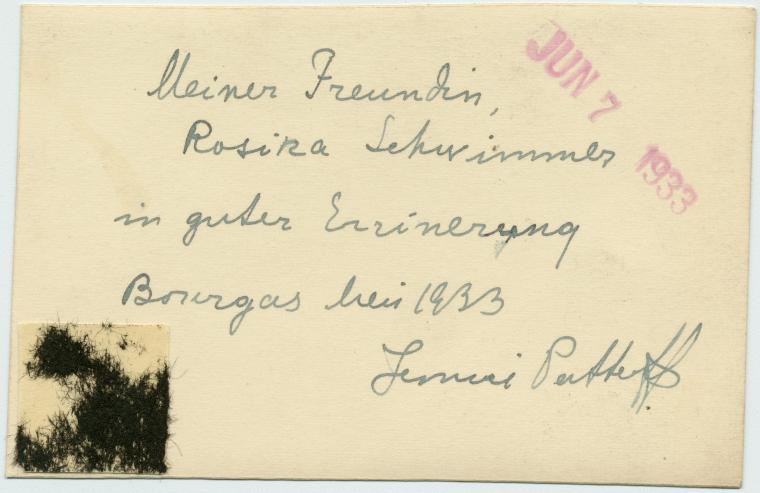 Meiner Freundin,
Rosika Schwimmer
in guter Errinerung
Bourgas Mai 1933
Jenni Patteff
JUN 7 1933